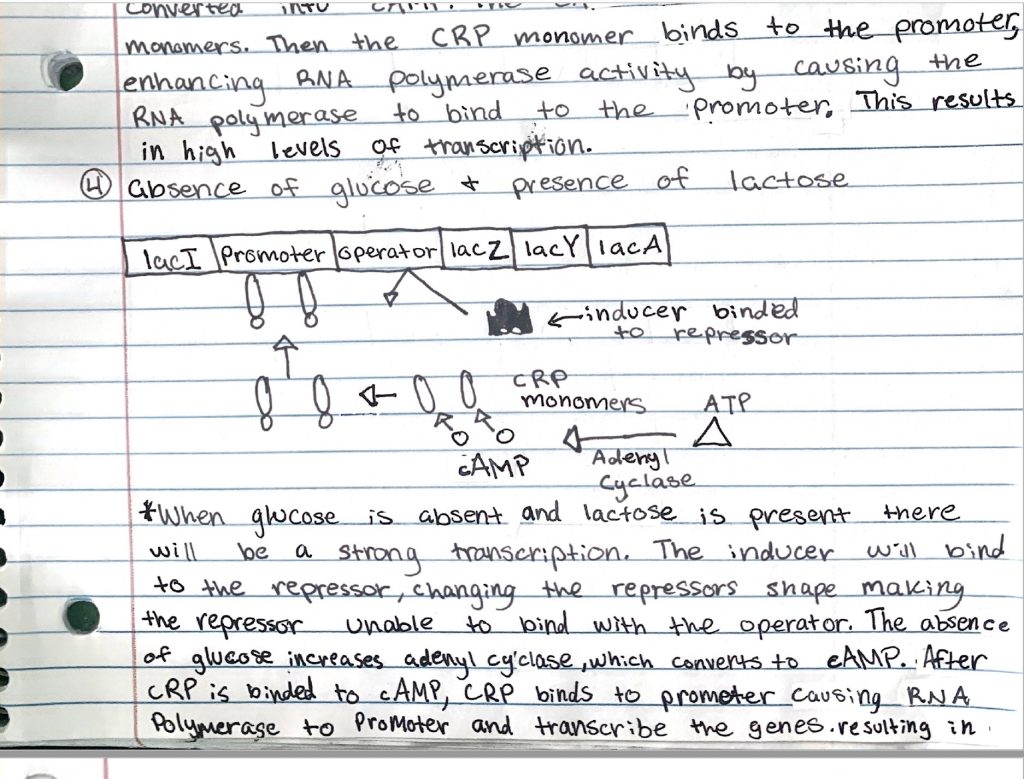 converted into cAMP. The
monomers. Then the CRP monomer binds to the promoter,
enhancing RNA polymerase activity by causing the
RNA polymerase to bind to the promoter. This results
in high levels of transcription.
④ absence of glucose + presence of lactose
lacI Promoter operator lacZ lacY lacA
←inducer binded
to repressor
CRP
monomers
ATP
cAMP
Adenyl
Cyclase
*When glucose is absent and lactose is present there
will be a strong transcription. The inducer will bind
to the repressor, changing the repressors shape making
the repressor unable to bind with the operator. The absence
of glucose increases adenyl cyclase, which converts to cAMP. After
CRP is binded to cAMP, CRP binds to prometer causing RNA
Polymerase to Promoter and transcribe the genes. resulting in